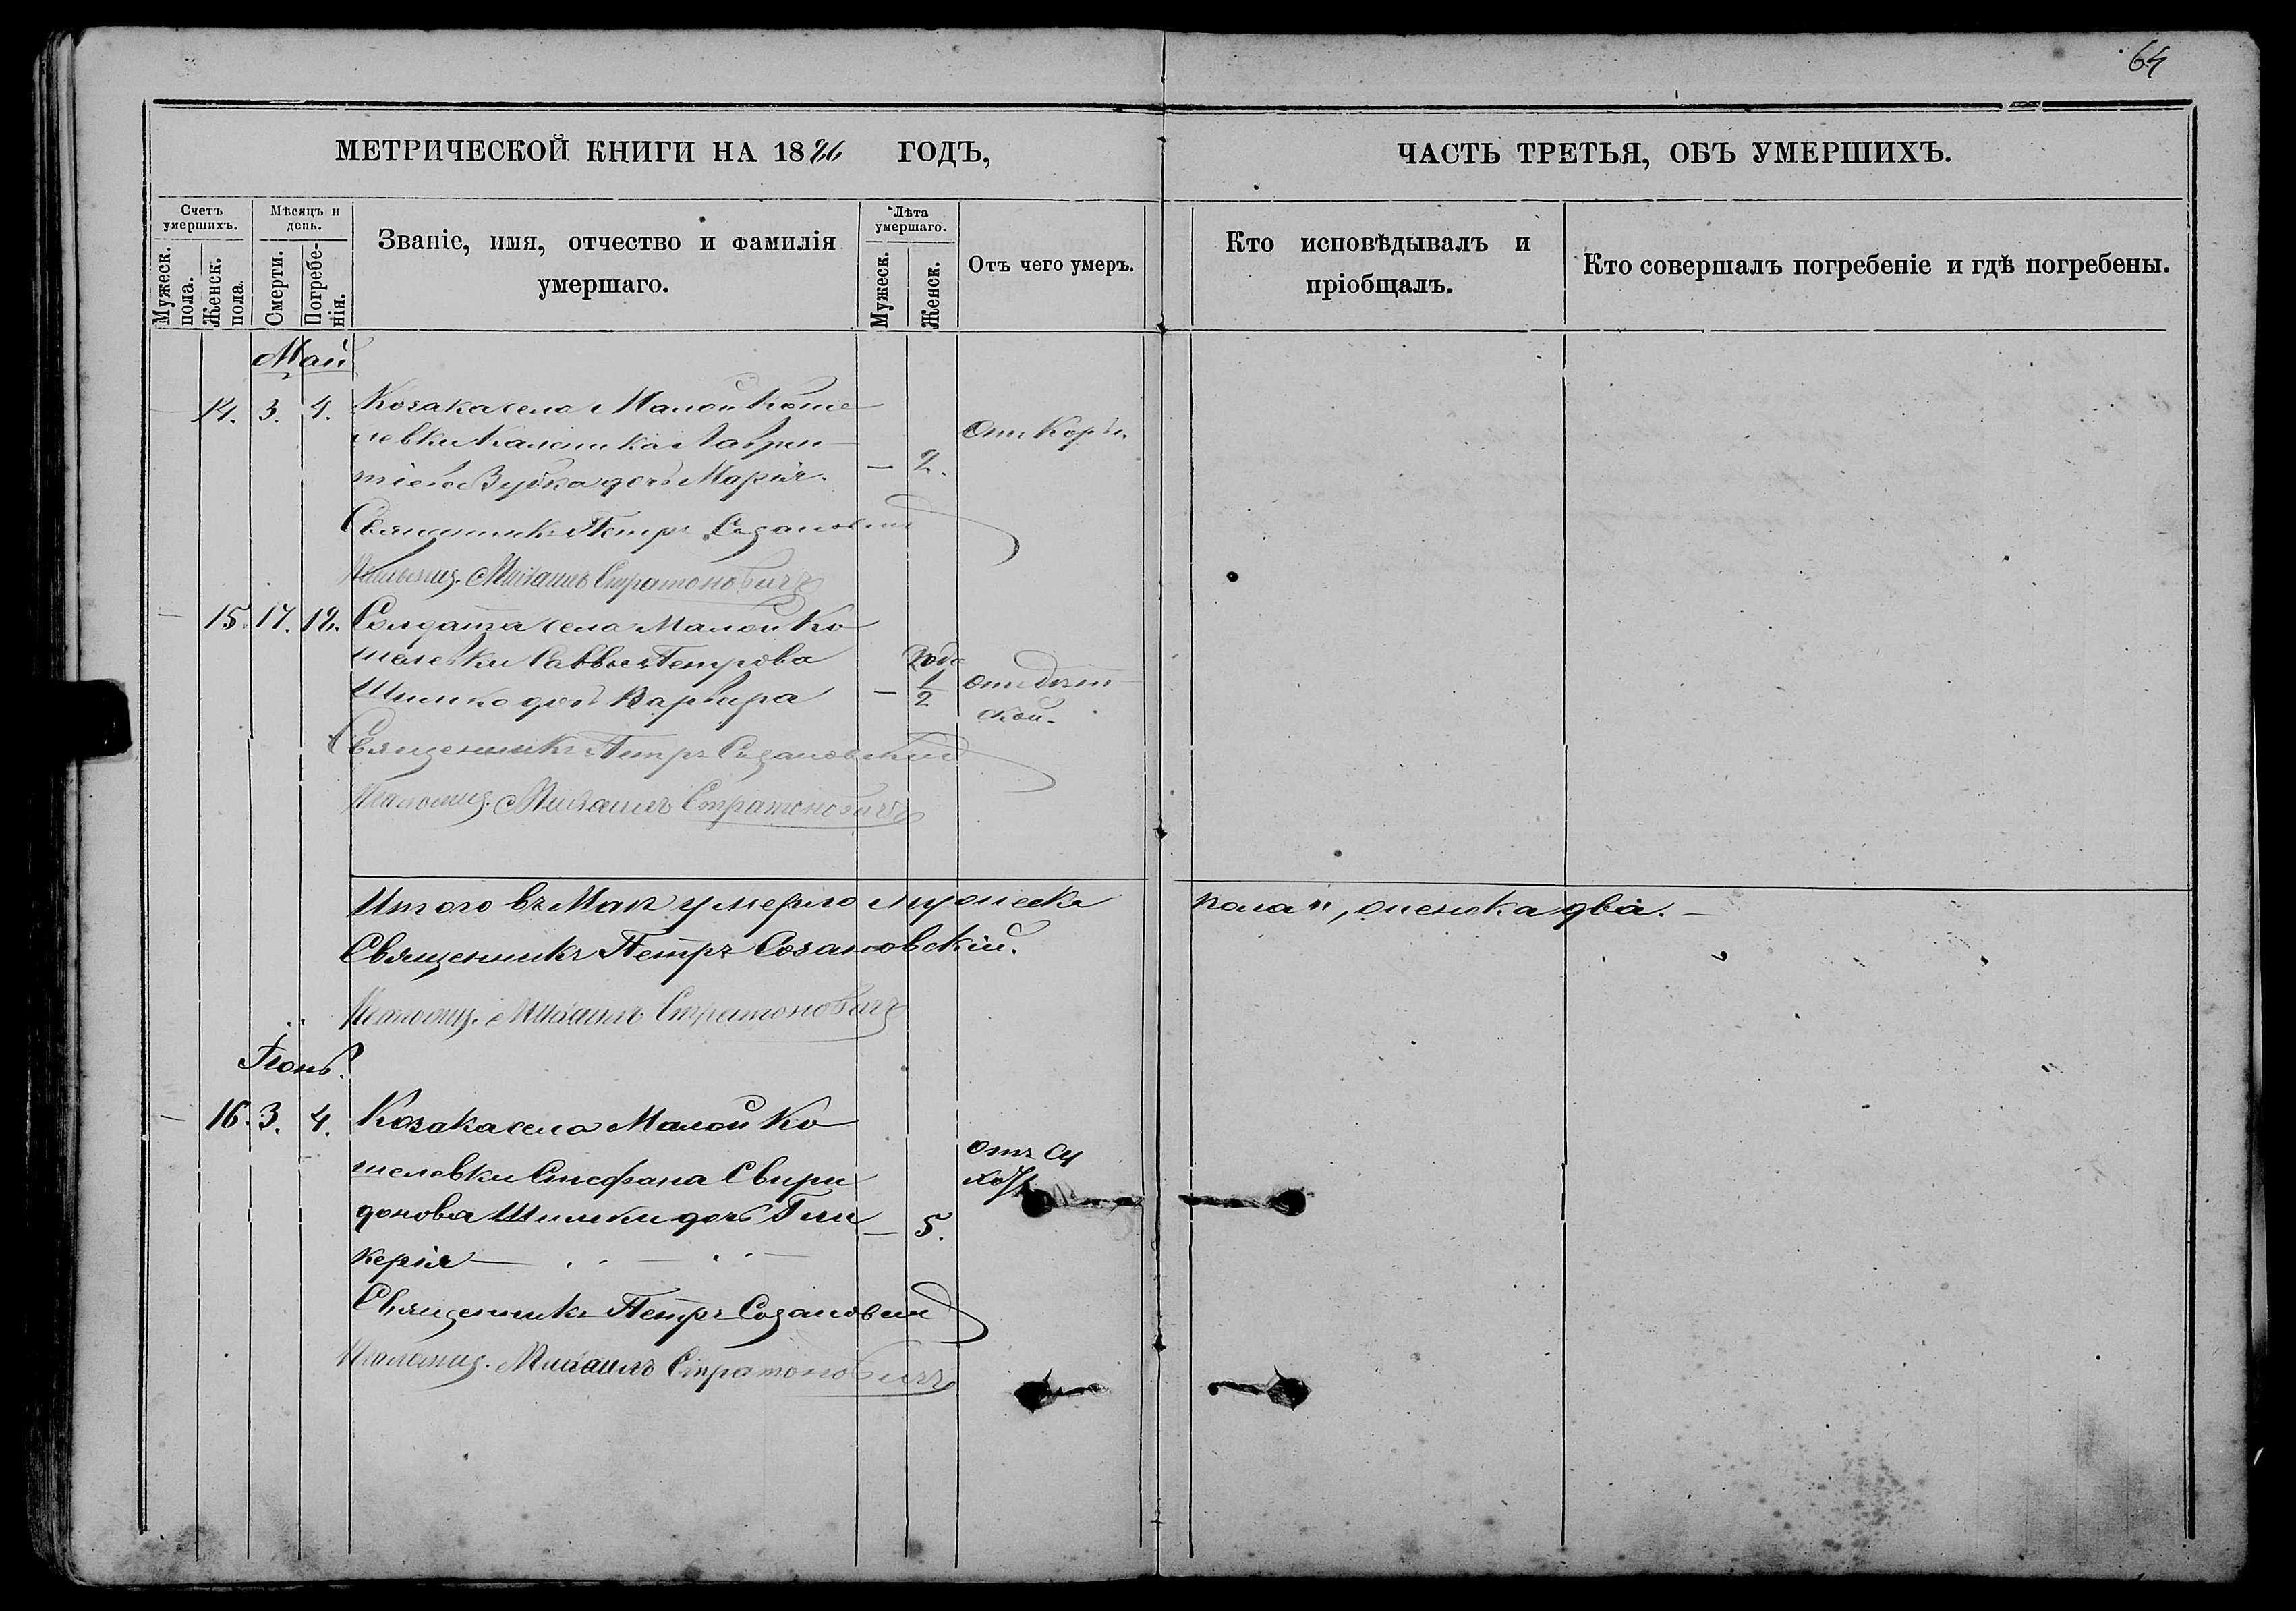 64
МЕТРИЧЕСКОЙ КНИГИ НА 1886 ГОДЪ,
ЧАСТЬ ТРЕТЬЯ, ОБЪ УМЕРШИХЪ.
Счетъ умершихъ.
Мужеск. пола.
Женск. пола.
Мѣсяцъ и день.
Смерти.
Погребенія.
Званіе, имя, отчество и фамилія
умершаго.
Лѣта умершаго.
Мужеск.
Женск.
Отъ чего умеръ.
Кто исповѣдывалъ и
пріобщалъ.
Кто совершалъ погребеніе и гдѣ погребены.
Май
— 14. 3. 4. Козака села Малой Коше
левки Калиника Лаврен
тіева Зубка дочь Марія. — 2. отъ Кори.
Священникъ Петръ Созановскій
Псаломщ. Михаилъ Стратоновичъ
— 15. 17. 18. Солдата села Малой Ко
шелевки Саввы Петрова года
Шимко дочь Варвара — 1/2 отъ
ской.
Священникъ Петръ Созановскій
Псаломщ. Михаилъ Стратоновичъ
Итого въ Маѣ умерло мужеска пола ", женска два. —
Священникъ Петръ Созановскій.
Псаломщ. Михаилъ Стратоновичъ
Іюнь.
— 16. 3. 4. Козака села Малой Ко
шелевки Стефана Свири отъ су
донова Шимки дочь Гли — 5. хот
керія —
Священникъ Петръ Созановскій
Псаломщ. Михаилъ Стратоновичъ